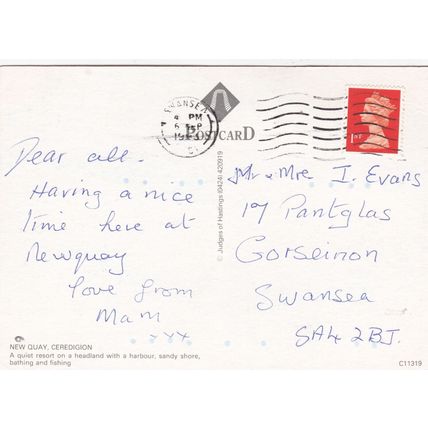 SWANSEA
4 PM
6 SEP
POSTCARD
1ST
Dear all.
Having a nice
time here at
Newquay
love from
Mam
xxx
© Judges of Hastings (0424) 420919
Mr & Mrs I. Evans
17 Pantglas
Gorseinon
Swansea
SA4 2BJ.
NEW QUAY, CEREDIGION
A quiet resort on a headland with a harbour, sandy shore,
bathing and fishing
C11319